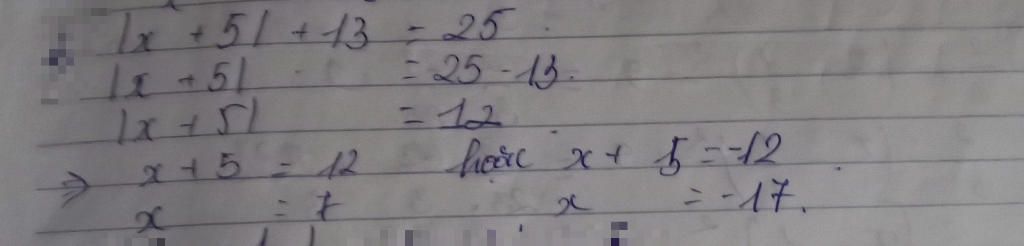 |x + 5| + 13 = 25
|x + 5| = 25 - 13.
|x + 5| = 12
⇒ x + 5 = 12 hoặc x + 5 = -12
x = 7 x = -17.